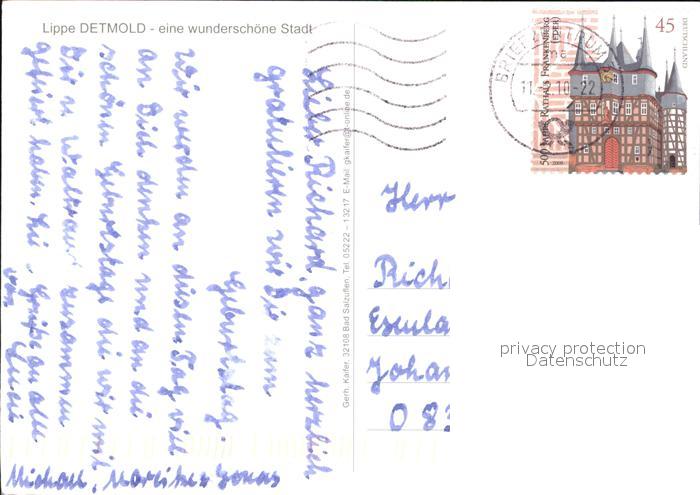 Lippe DETMOLD - eine wunderschöne Stadt
Lieber Richard, ganz herzlich
gratulieren wir Dir zum
Geburtstag.
Wir werden an diesen Tag viel
an Dich denken und an die
schönen Geburtstage die wir mit
Dir u Waltraud zusammen
gefeiert haben. Grüße an alle
von
Michael, Marlies u Jonas
Gerh. Kaifer, 32108 Bad Salzuflen, Tel. 05222 – 13217 E-Mail: gkaifer@t-online.de
BRIEFZENTRUM
11. 10-22
500 JAHRE RATHAUS FRANKENBERG
(EDER)
45
DEUTSCHLAND
2009
Herr
Rich
Escula
Johan
0 83
privacy protection
Datenschutz